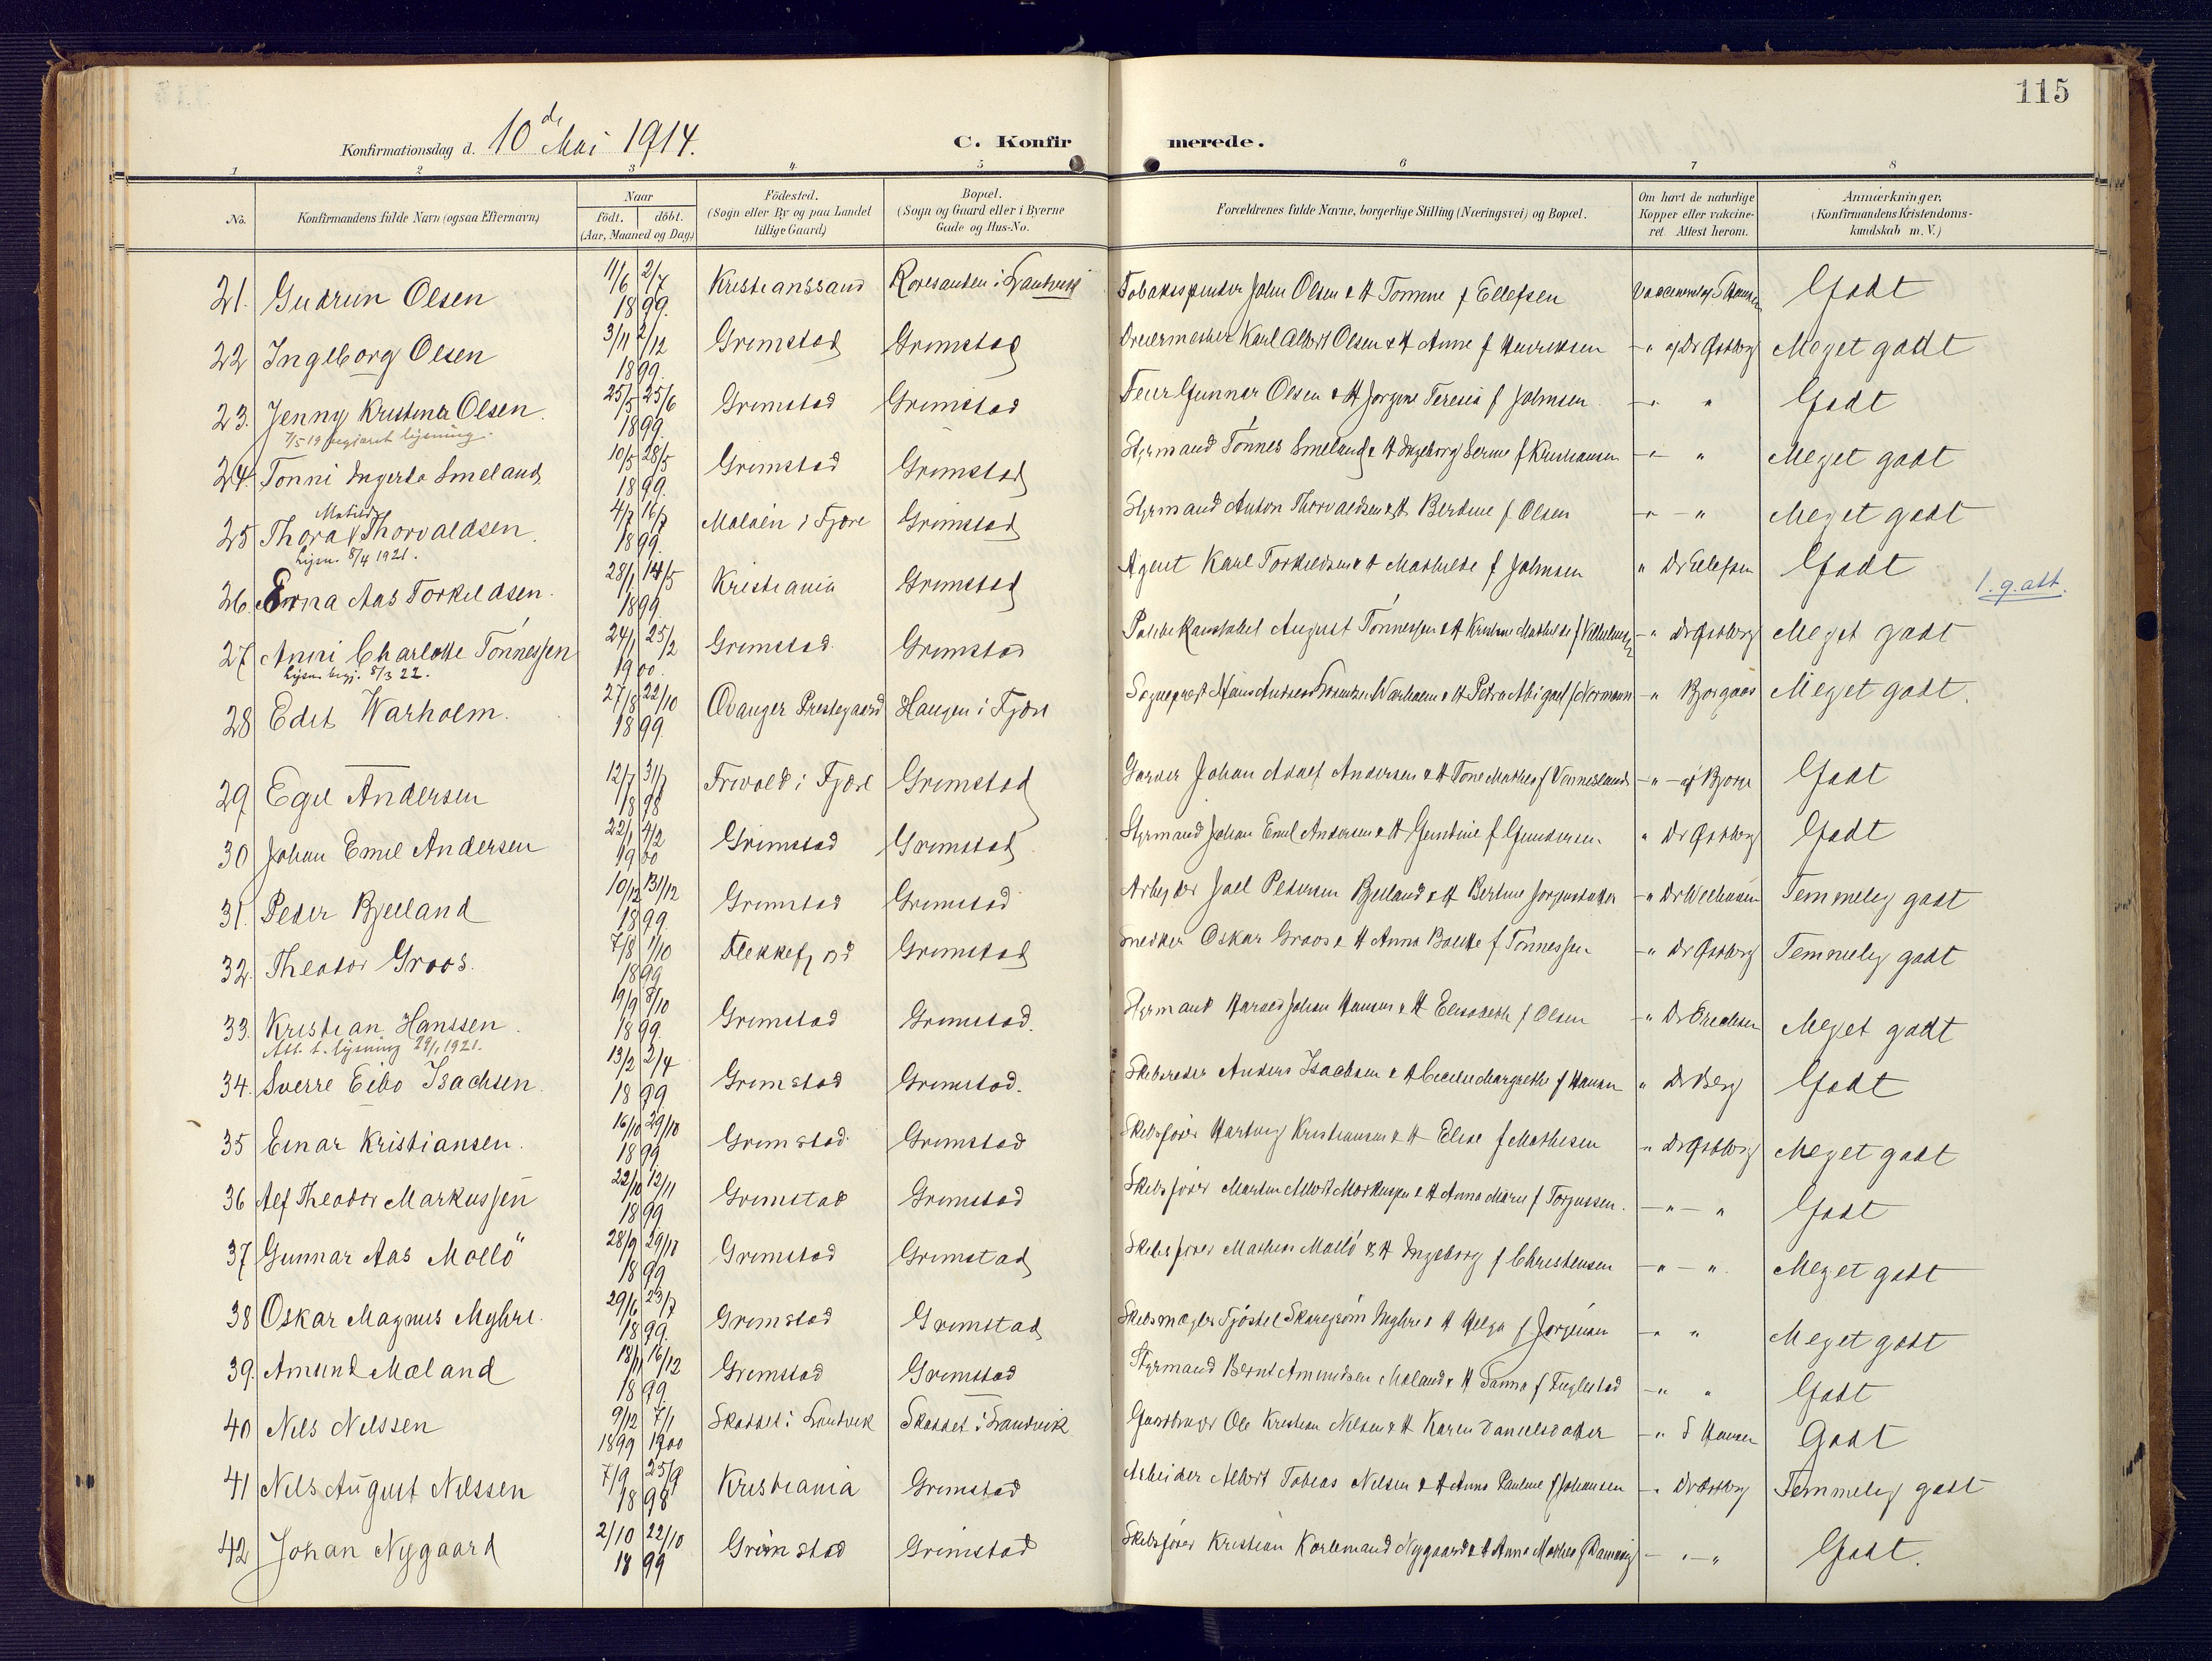 115
Konfirmationsdag d. 10de Mai 1914. C. Konfirmerede.
1 2 3 4 5 6 7 8
No. Konfirmandens fulde Navn (ogsaa Efternavn) Naar født. døbt. (Aar, Maaned og Dag) Fødested. (Sogn eller By og paa Landet tillige Gaard) Bopæl. (Sogn og Gaard eller i Byerne Gade og Hus-No. Forældrenes fulde Navne, borgerlige Stilling (Næringsvei) og Bopæl. Om havt de naturlige Kopper eller vakcineret. Attest herom. Anmærkninger. (Konfirmandens Kristendomskundskab m. V.)
21. Gudrun Olsen 11/6 2/7 1899. Kristianssand Roresanden i Landvik John Olsen & H Tomine f Ellefsen Godt
22 Ingeborg Olsen 3/11 2/12 1899. Grimstad Grimstad Karl Albert Olsen & H Anne f Henriksen -" af Dr Østberg Meget godt
23. Jenny Kristine Olsen. 25/5 25/6 1899. Grimstad Grimstad Feier Gunnar Olsen & H Jorgine Teresia f Johnsen -" " Godt
7/5 19 begjæret lysning.
24. Tonni Ingerta Smeland 10/5 28/5 1899. Grimstad Grimstad Styrmand Tönnes Smeland & H Ingeborg f -" " Meget godt
25 Thora Matilde Thorvaldsen. 4/7 16/7 1899. i Fjære Grimstad Styrmand Anton Thorvaldsen & H Bertine f Olsen -" - " Meget godt
Lysn. 8/4 1921.
26. Erna Aas Torkeldsen. 28/1 14/5 1899. Kristiania Grimstad Agent Karl Torkeldsen & H Mathilde f Johnsen " Dr Ellefsen Godt 1. g. att.
27 Anni Charlotte Tönnessen 24/1 25/2 1900. Grimstad. Grimstad August Tönnessen & H Kristine Mathilde f -" Dr Østberg Meget godt
Lysn. begj. 8/3 22.
28 Edit Warholm. 27/8 22/10 1899 Qvanger Prestegaard Haugen i Fjære Sogneprest Warholm & H Petra Abigael f Normann -" Meget godt.
29 Egil Andersen 12/7 31/7 1898 Frivold i Fjære Grimstad Garver Johan Adolf Andersen & H Tone Mathea f Venneslands -" - af Godt
30 Johan Emil Andersen 22/1 4/2 1900 Grimstad Grimstad Styrmand Johan Emil Andersen & H Gundine f Gundersen. " Dr Østberg Godt
31. Peder Bjelland 10/12 31/12 1899. Grimstad Grimstad Arbeider Joel Pedersen Bjelland & H Bertine -" Dr Temmelig godt
32. Theodor Groos. 7/8 1/10 1899 Flekkefjord Grimstad Snedker Oskar Groos & H Anna f Tönnessen -" Dr Østberg Temmelig godt
33. Kristian Hanssen. 19/9 8/10 1899. Grimstad Grimstad. Styrmand Harald Johan Hansen & H Elisabeth f Olsen -" Dr Meget godt
Att. t. lysning 29/1 1921.
34. Sverre Eibo Isachsen. 13/2 2/4 1899 Grimstad Grimstad. Skibsreder Anders Isachsen & H Cecilie Margrethe f Hansen " Dr Berg Godt
35 Einar Kristiansen. 16/10 29/10 1899. Grimstad Grimstad Skibsfører Hartvig Kristiansen & H Elise f Mathisen -" Dr Østberg Meget godt
36 Alf Theodor Markussen 22/10 12/11 1899 Grimstad Grimstad Skibsfører Martin Albert Markussen & H Anna Marie f Torjussen. -" - " Godt
37 Gunnar Aas Mollö 28/9 29/10 1899 Grimstad Grimstad Skibsfører Mathias Mollö & H Ingeborg f Christensen -" - " Meget godt
38 Oskar Magnus Myhre. 29/6 23/7 1899. Grimstad Grimstad Skibsmægler Myhre & H Helga f Jørgensen -" " Meget godt
39. Amund Møland 18/11 16/12 1899 Grimstad Grimstad Styrmand Bernt Amundsen Møland & H Tanna f Fuglestad -" " Godt
40 Nils Nilssen 9/12 7/1 1899 1900 i Landvik i Landvik Gaardbruger Ole Kristian Nilsen & H Karen Danielsdatter -" S Hansen Godt
41 Nils August Nilssen 7/9 25/9 1898 Kristiania Grimstad Arbeider Albert Tobias Nilsen & H Anna Pauline f Johansen -" Dr Østberg Temmelig godt
42 Johan Nygaard 2/10 22/10 1899 Grimstad Grimstad Skibsfører Kristian Nygaard & H Anne Mathea f - "-" Godt.